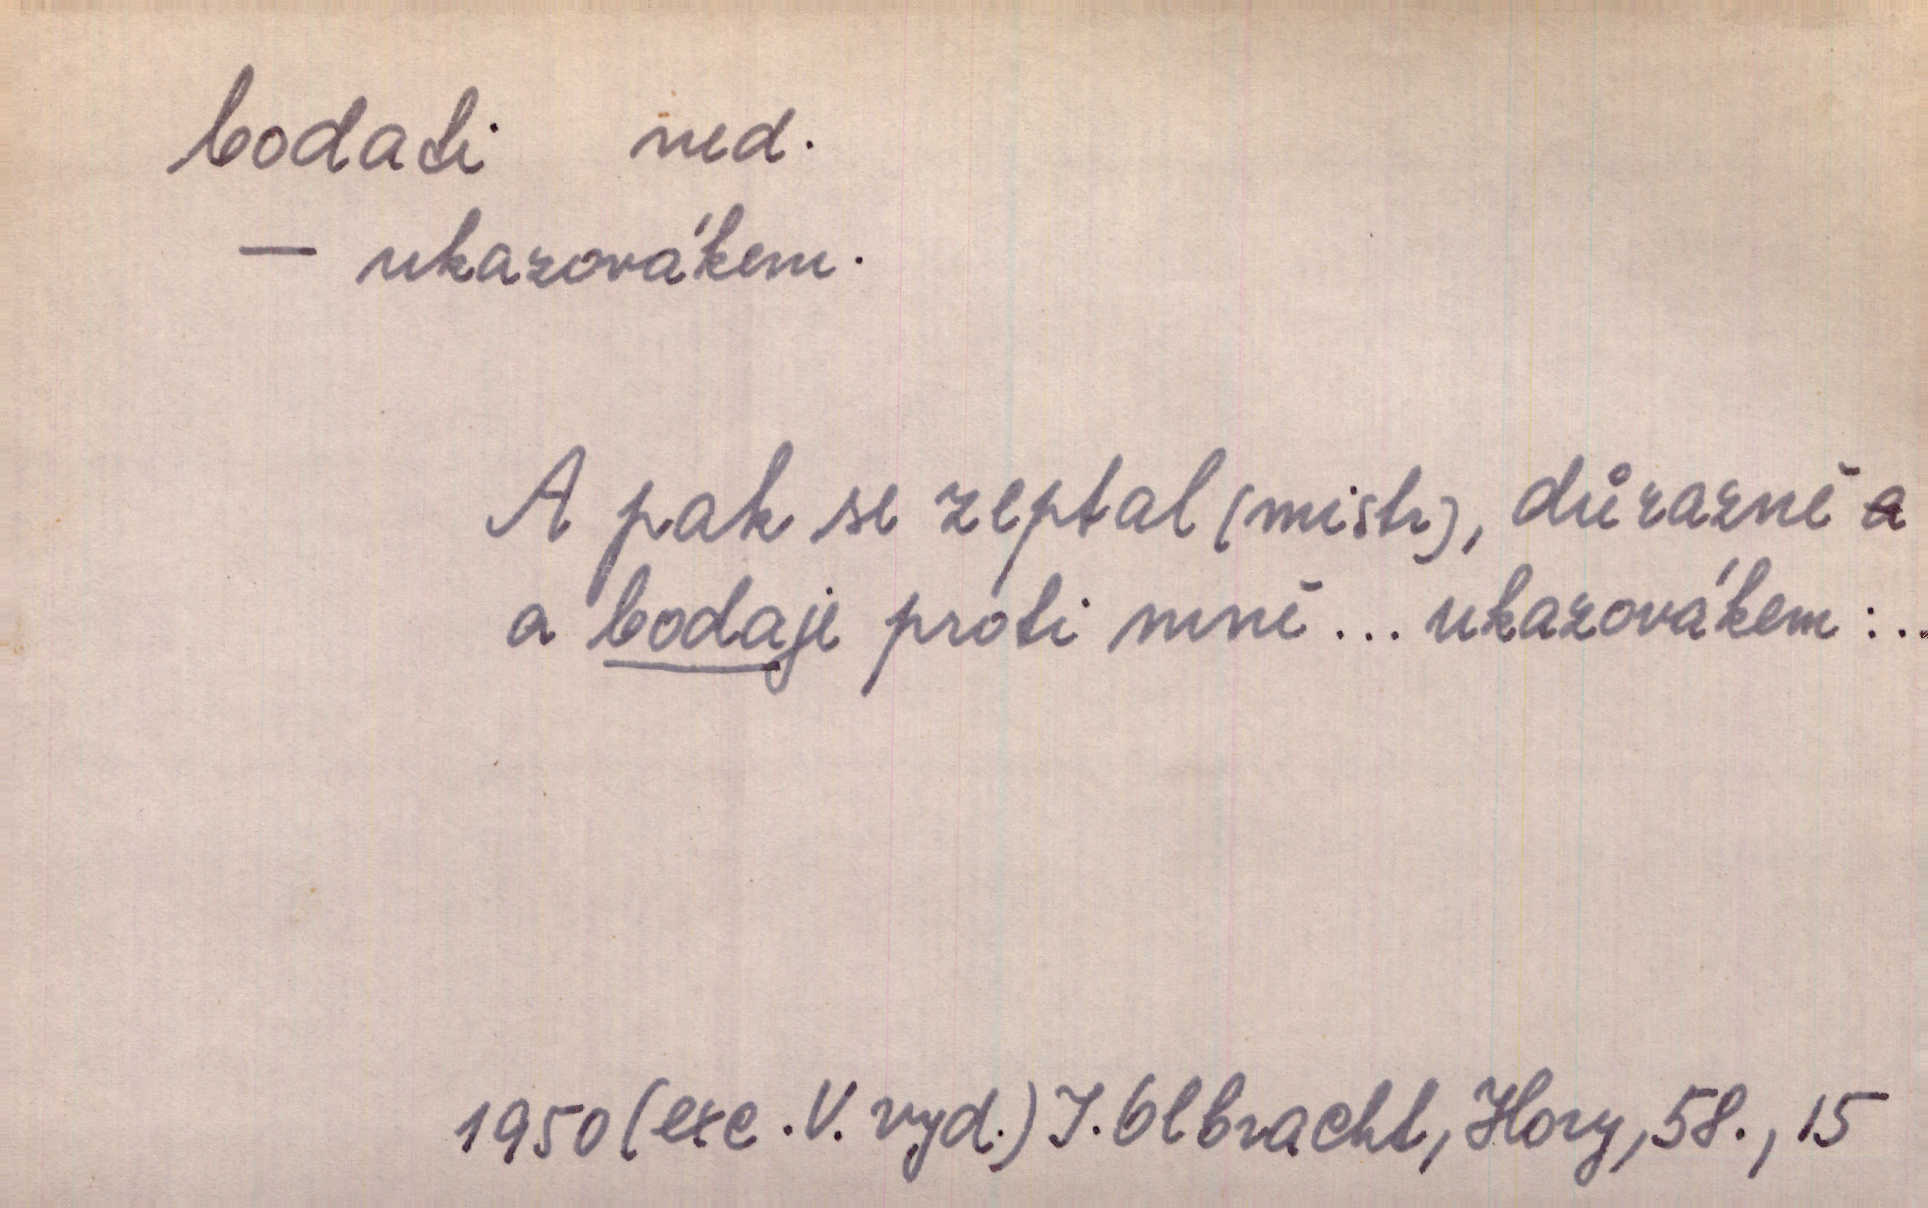 bodati ned.
— ukazovákem.
A pak se zeptal (mistr), důrazně a
a bodaje proti mně... ukazovákem:..
1950 (exc. V. vyd.) I. Olbracht, Hory, 58., 15